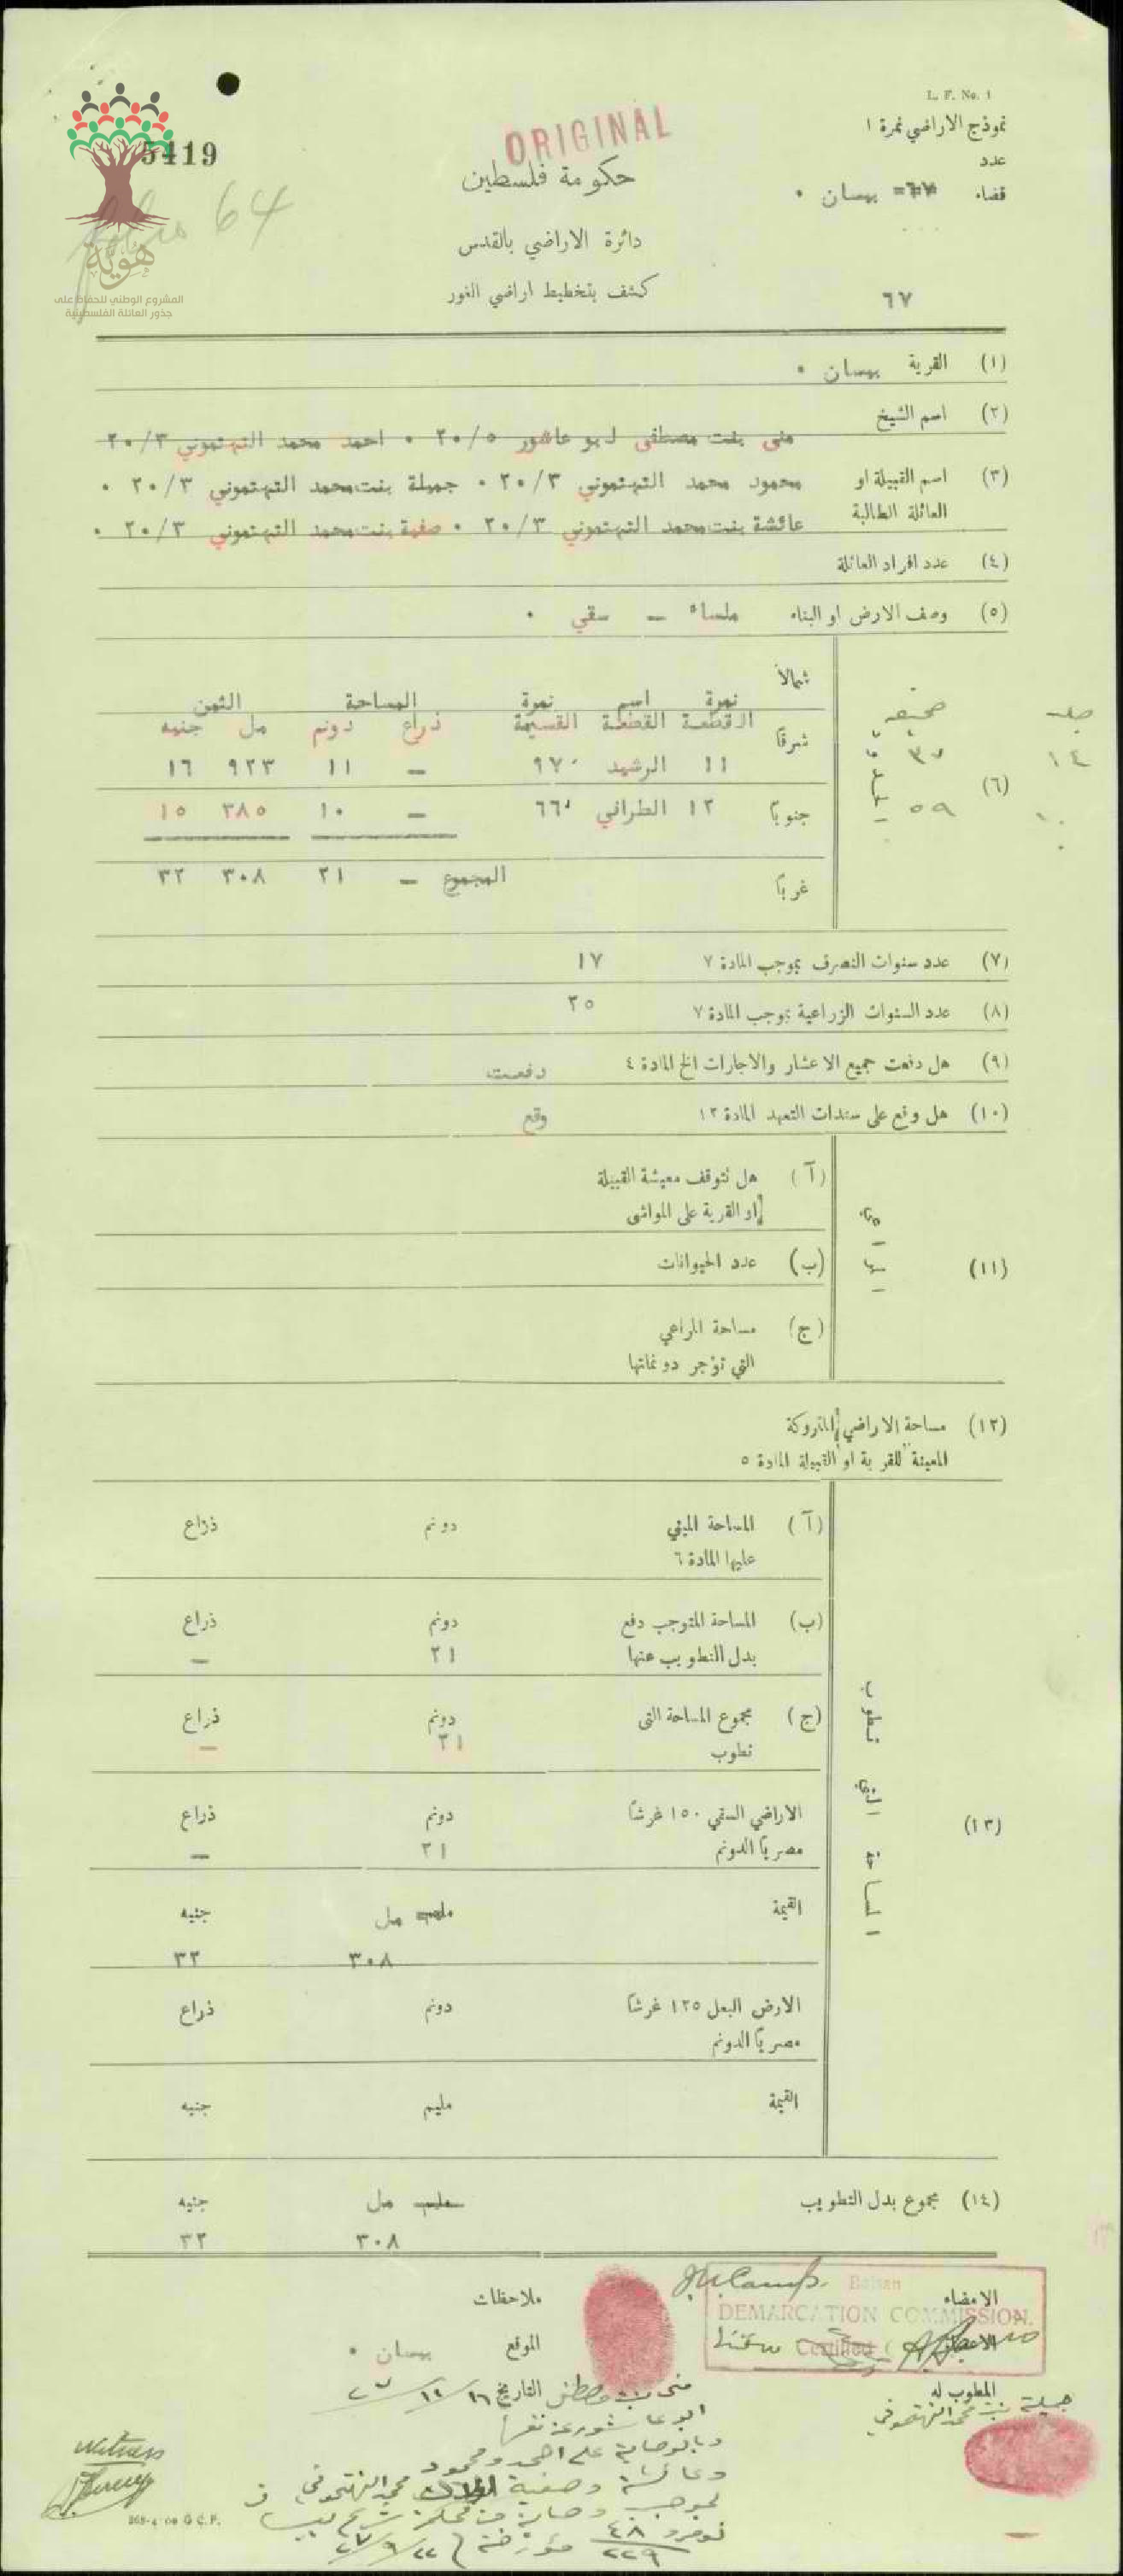 L. F. No. 1
نموذج الاراضي نمرة ١
ORIGINAL
5419
64
عدد
حكومة فلسطين
قضاء بيسان ٠
دائرة الاراضي بالقدس
هُويّة
المشروع الوطني للحفاظ على
جذور العائلة الفلسطينية
كشف بتخطيط اراضي الغور
٦٧
(١) القرية بيسان ٠
(٢) اسم الشيخ
منى بنت مصطفى ابو عاشور ٢٠/٥ ٠ احمد محمد التهتموني ٢٠/٣
(٣) اسم القبيلة او محمود محمد التهتموني ٢٠/٣ ٠ جميلة بنت محمد التهتموني ٢٠/٣ ٠
العائلة الطالبة عائشة بنت محمد التهتموني ٢٠/٣ ٠ صفية بنت محمد التهتموني ٢٠/٣ ٠
(٤) عدد افراد العائلة
(٥) وصف الارض او البناء ملساء — سقي ٠
شمالاً
نمرة اسم نمرة المساحة الثمن
القطعة القطعة القسيمة ذراع دونم مل جنيه
شرقاً
صحيفه
٣٧
١٤
١١ الرشيد ٩٧ — ١١ ٩٢٣ ١٦
(٦)
٥٩
جنوباً ١٢ الطراني ٦٦ — ١٠ ٣٨٥ ١٥
المجموع — ٢١ ٣٠٨ ٣٢
غرباً
(٧) عدد سنوات التصرف بموجب المادة ٧ ١٧
(٨) عدد السنوات الزراعية بموجب المادة ٧ ٢٥
(٩) هل دفعت جميع الاعشار والاجارات الخ المادة ٤ دفعت
(١٠) هل وقع على سندات التعهد المادة ١٣ وقع
(١١)
(آ) هل تتوقف معيشة القبيلة
او القرية على المواشى
(ب) عدد الحيوانات
(ج) مساحة المراعي
التي تؤجر دونماتها
(١٢) مساحة الاراضي المتروكة
المعينة للقرية او القبيلة المادة ٥
(١٣) المساحة التي تطوب
(آ) المساحة المبني دونم ذراع
عليها المادة ٦
(ب) المساحة المتوجب دفع دونم ذراع
بدل التطويب عنها ٢١ —
(ج) مجموع المساحة التى دونم ذراع
تطوب ٢١ —
الاراضي السقي ١٥٠ غرشاً دونم ذراع
مصرياً الدونم ٢١ —
القيمة مل جنيه
٣٠٨ ٣٢
الارض البعل ١٢٥ غرشاً دونم ذراع
مصرياً الدونم
القيمة مليم جنيه
(١٤) مجموع بدل التطويب مليم مل جنيه
٣٠٨ ٣٢
Baisan
الامضاء
ملاحظات
DEMARCATION COMMISSION.
Certified
الموقع بيسان ٠
التاريخ
المطوب له
جميلة بنت محمد التهتموني
منى بنت مصطفى
ابو عاشور عن نفسها
وبالوصاية على احمد ومحمود
وعائشة وصفية اولاد محمد التهتموني
Witness
٤٨
٢٢٩